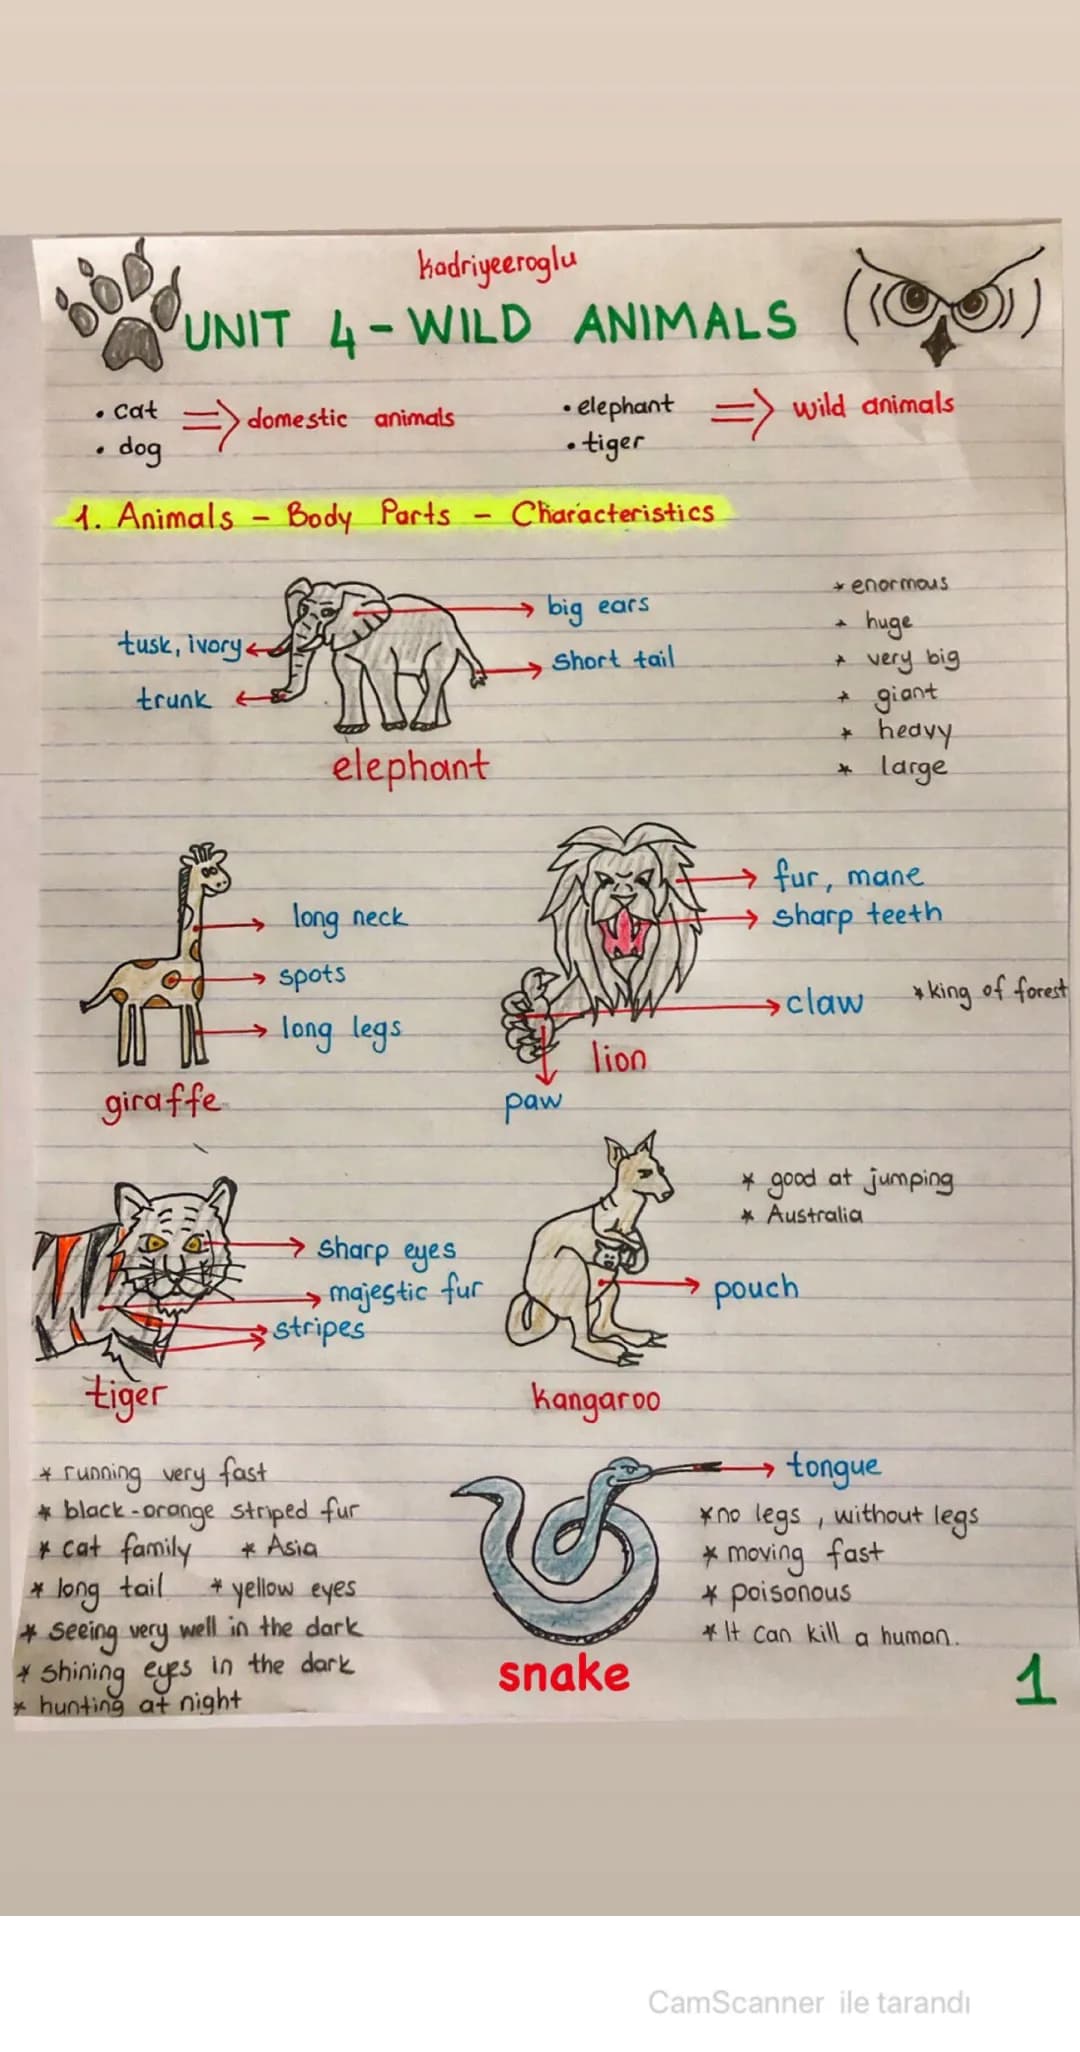 kadriyeeroglu
UNIT 4 - WILD ANIMALS
• cat
• dog
=> domestic animals
• elephant
• tiger
=> wild animals
1. Animals - Body Parts - Characteristics
tusk, ivory
trunk
big ears
short tail
elephant
* enormous
* huge
* very big
* giant
* heavy
* large
long neck
spots
long legs
giraffe
fur, mane
sharp teeth
claw
* king of forest
lion
paw
sharp eyes
majestic fur
stripes
tiger
* good at jumping
* Australia
pouch
kangaroo
* running very fast
* black-orange striped fur
* cat family * Asia
* long tail * yellow eyes
* seeing very well in the dark
* shining eyes in the dark
* hunting at night
tongue
* no legs, without legs
* moving fast
* poisonous
* It can kill a human.
snake
1
CamScanner ile tarandı